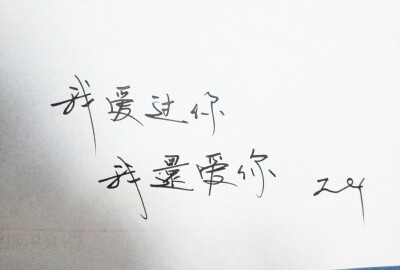 我爱过你
我還爱你